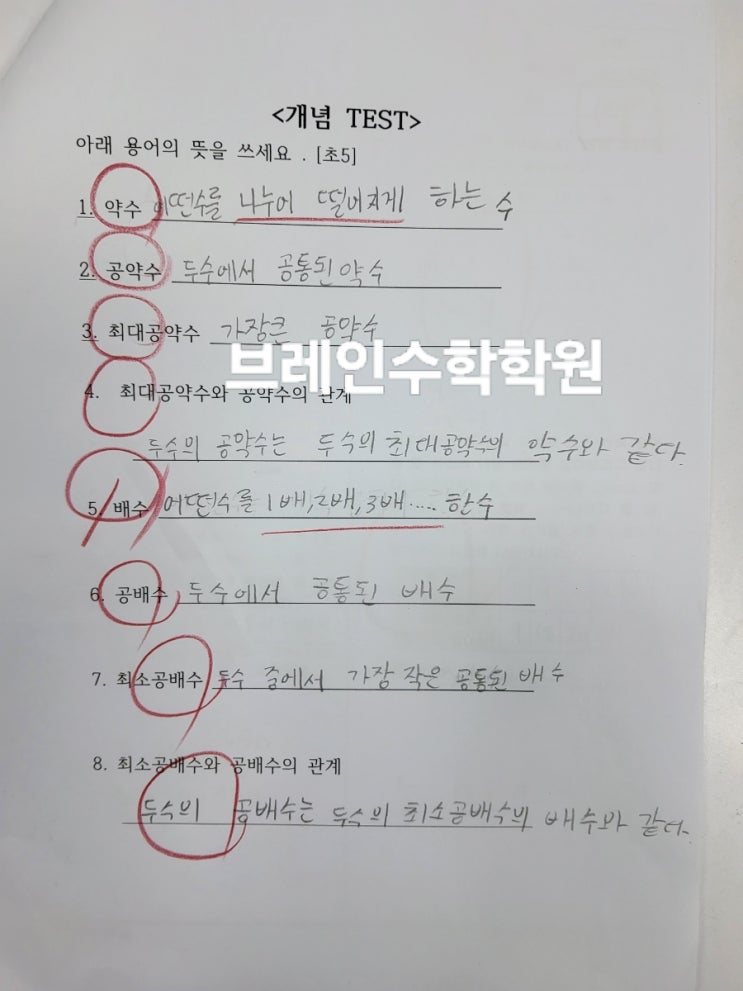 <개념 TEST>
아래 용어의 뜻을 쓰세요 . [초5]
1. 약수 어떤수를 나누어 떨어지게 하는 수
2. 공약수 두수에서 공통된 약수
3. 최대공약수 가장큰 공약수
브레인수학학원
4. 최대공약수와 공약수의 관계
두수의 공약수는 두수의 최대공약수의 약수와 같다.
5. 배수 어떤수를 1배,2배,3배..... 한수
6. 공배수 두수에서 공통된 배수
7. 최소공배수 두수 중에서 가장 작은 공통된 배수
8. 최소공배수와 공배수의 관계
두수의 공배수는 두수의 최소공배수의 배수와 같다.